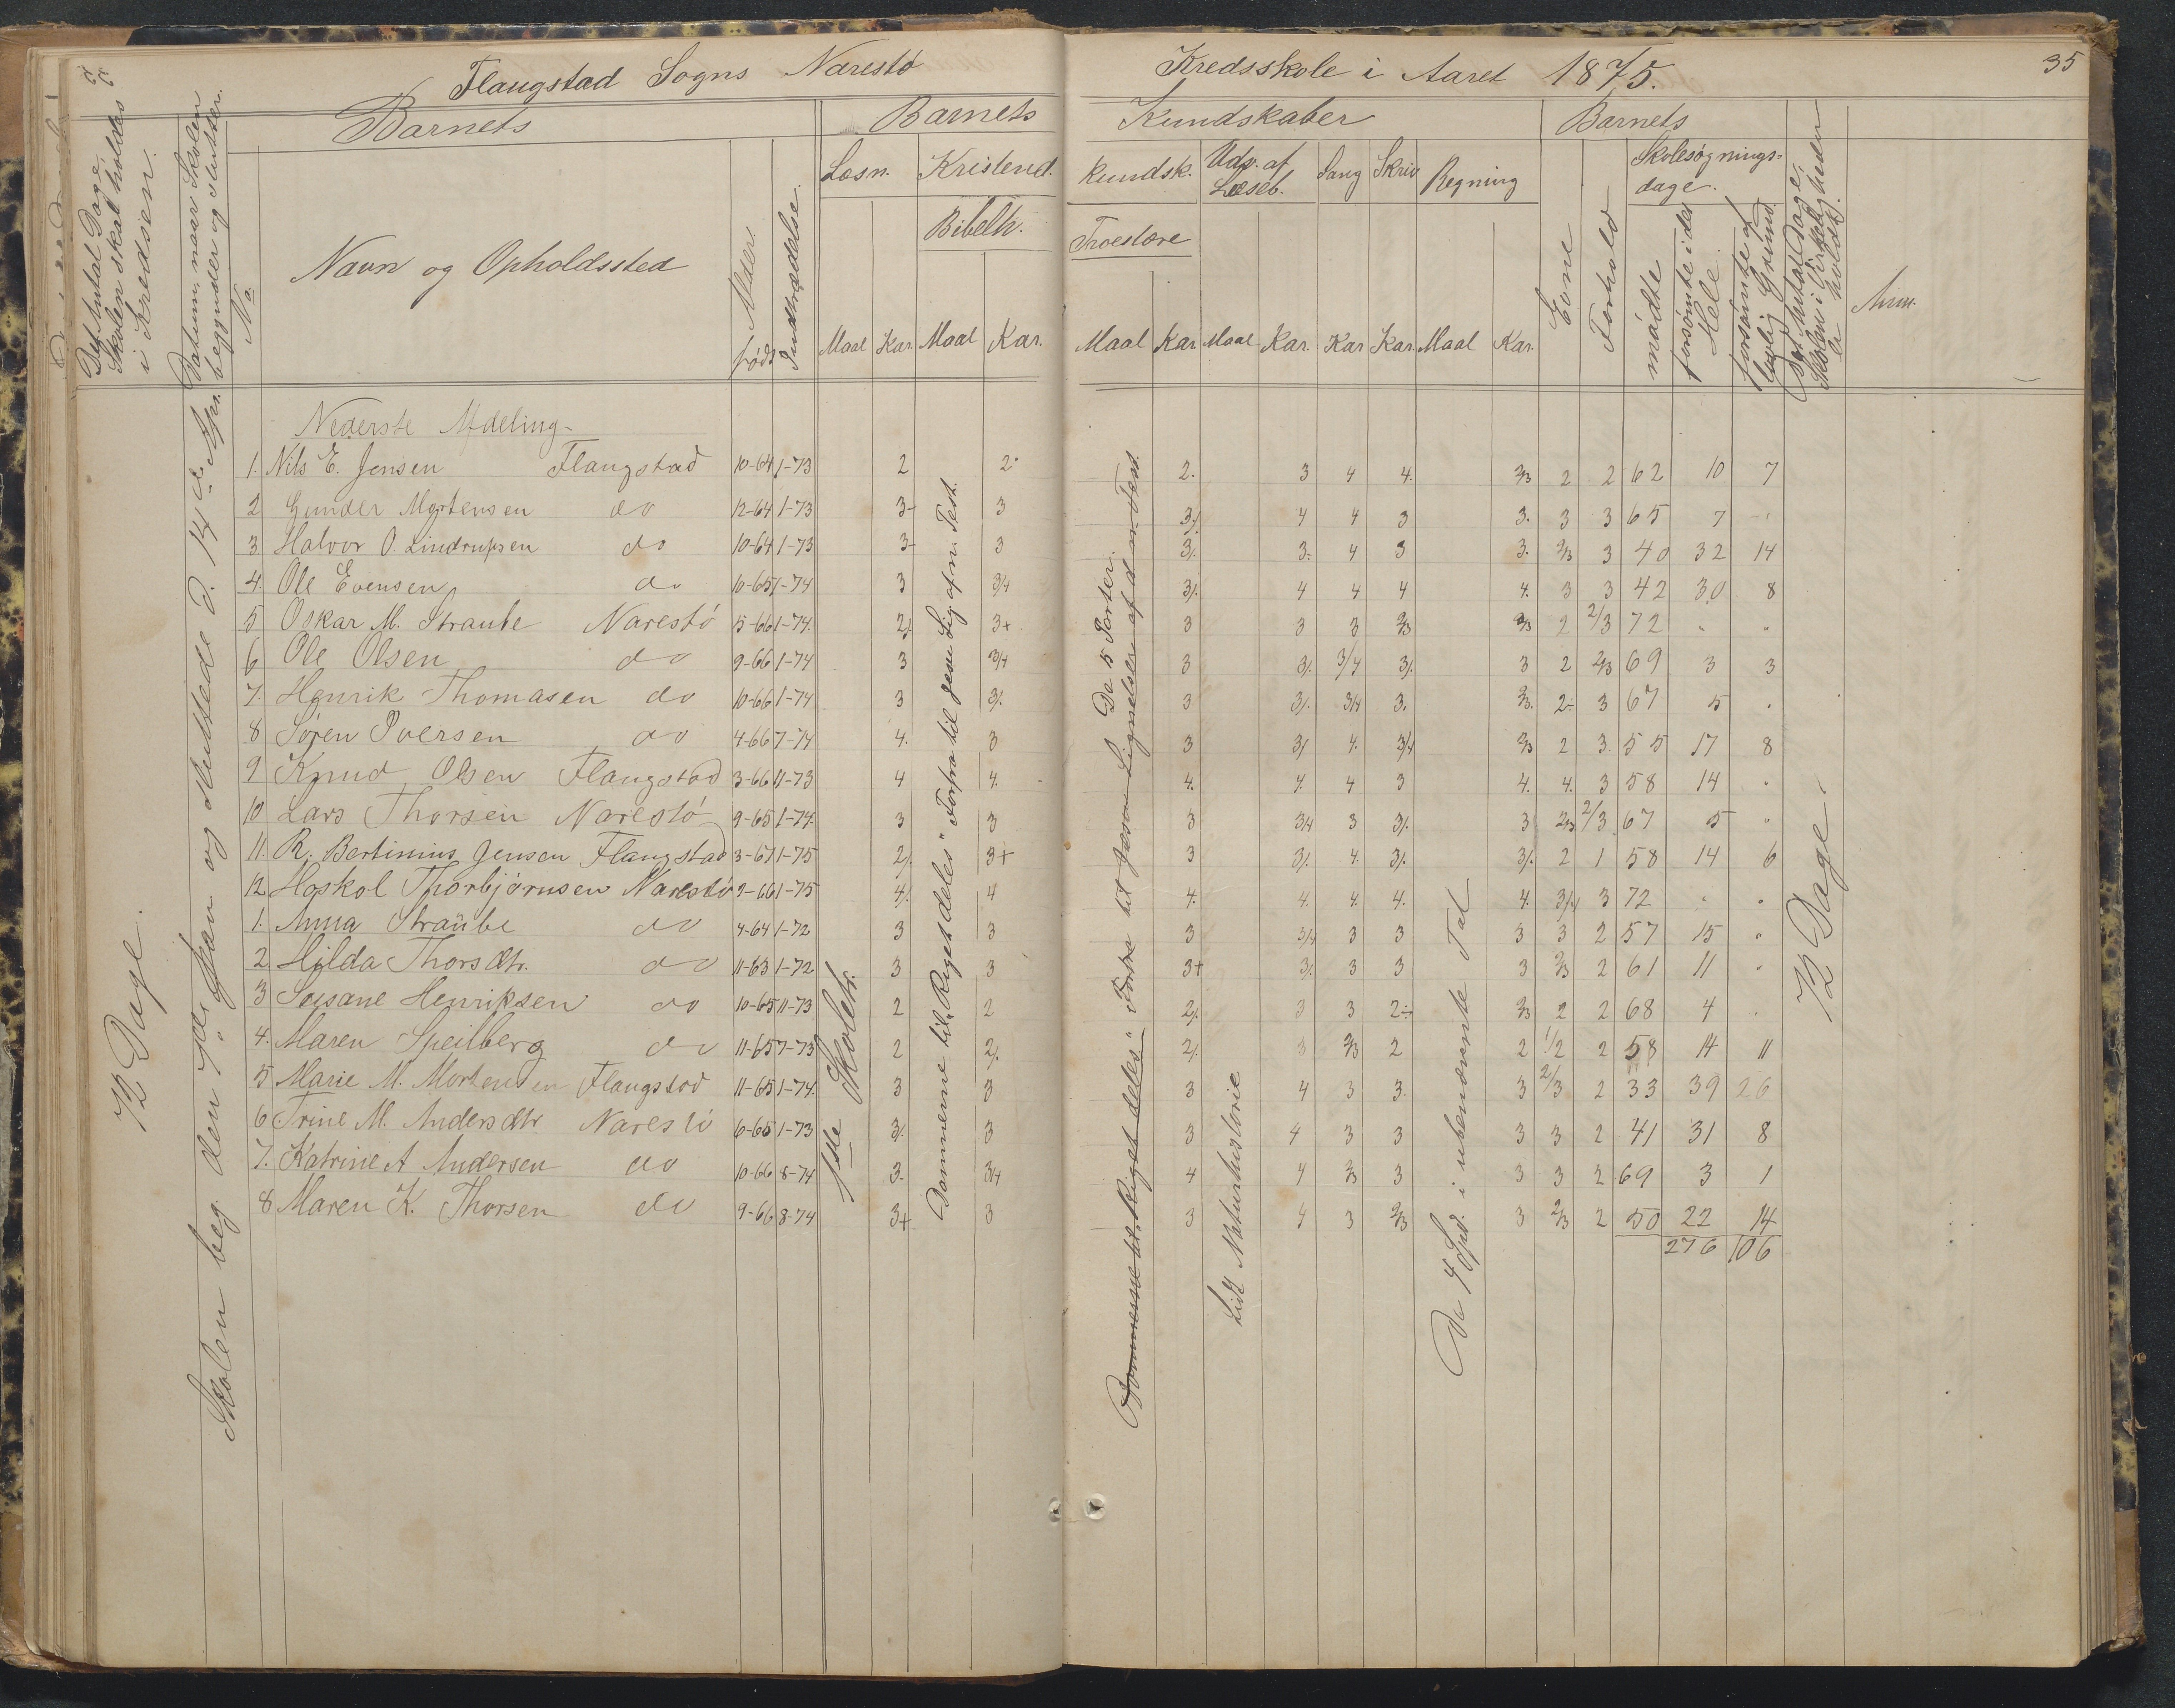 Flaugstad Sogns Narestö Kredsskole i Aaret 1875. 35
Det Antal Dage Skolen skal holdes i Kredsen.
Datum, naar Skolen begynder og slutter.
No
Barnets
Navn og Opholdssted
Alder. født
Indtrædelse.
Barnets Kundskaber
Læsn. Kristend. kundsk. Udv. af Læseb. Sang Skriv Regning
Bibelh. Troeslære
Maal Kar. Maal Kar. Maal Kar. Maal Kar. Kar Kar. Maal Kar.
Barnets
Evne
Forhold
Skolesøgnings-dage.
mødte
forsömte i det Hele.
forsömte af lovlig Grund.
Det Antal Dage Skolen i Virkeligheden er holdt.
Anm.
Nederste Afdeling
1. Nils E. Jensen Flaugstad 10-64 1-73 2 2 2. 3 4 4. 2/3 2 2 62 10 7
2 Gunder Mortensen do 12-64 1-73 3- 3 3/. 4 4 3 3. 3 3 65 7 "
3 Halvor O. Lindrupsen do 10-64 1-73 3- 3 3/. 3- 4 3 3. 2/3 3 40 32 14
4. Ole Evensen do 10-65 1-74 3 3/4 3/. 4 4 4 4. 3 3 42 30 8
5 Oskar M. Straube Narestö 5-66 1-74. 2/. 3+ 3 3 3 2/3 2/3 2 2/3 72 " "
6 Ole Olsen do 9-66 1-74 3 3/4 3 3/. 3/4 3/. 3 2 2/3 69 3 3
7. Henrik Thomasen do 10-66 1-74 3 3/. 3 3/. 3/4 3. 2/3. 2÷ 3 67 5 "
8 Søren Iversen do 4-66 7-74 4. 3 3 3/ 4. 3/4 2/3 2 3. 55 17 8
9 Knud Olsen Flaugstad 3-66 11-73 4 4. 4. 4. 4 3 4. 4. 3 58 14 "
10 Lars Thorsen Narestö 9-65 1-74. 3 3 3 3/4 3 3/. 3 2/3 2/3 67 5 "
11. R. Bertinius Jensen Flaugstad 3-67 1-75 2/. 3+ 3 3/. 4. 3/. 3/. 2 1 58 14 6
12. Hoskol Thorbjörnsen Narestö 9-66 1-75 4/. 4 4. 4. 4. 4. 4. 3/4 3 72 " "
1. Anna Straube do 4-64 1-72 3 3 3 3/4 3 3 3 3 2 57 15 "
2. Hilda Thorsdtr. do 11-63 1-72 3 3 3+ 3/. 3 3 3 2/3 2 61 11 "
3 Susane Henriksen do 10-65 11-73 2 2 2/. 3 3 2÷ 2/3 2 2 68 4 "
4. Maren Speilberg do 11-65 7-73 2 2/. 2/. 3 2/3 2 2 1/2 2 58 14 11
5 Marie M. Mortensen Flaugstad 11-65 1-74. 3 3 3 4 3 3. 3 2/3 2 33 39 26
6 Trine M. Andersdtr Narestö 6-65 1-73 3/. 3 3 4 3 3 3 3 2 41 31 8
7. Katrine A Andersen do 10-66 8-74 3. 3/4 4 4 2/3 3 3 3 2 69 3 1
8 Maren K. Thorsen do 9-66 8-74 3+ 3 3 4 3 2/3 3 2/3 2 50 22 14
276 106
72 Dage.
Skolen beg. den 7de Jan og sluttede d. 14de Apr.
1ste Skoletr.
Dommerne til "Riget deles" Forfra til Jesu Lig. af n. Test.
De 5 Parter.
Dommerne til "Riget deles" Forfra til Lignelser af d. n. Test.
Lidt Naturhistorie
De 4 Spd. i ubenævnte Tal
72 Dage.